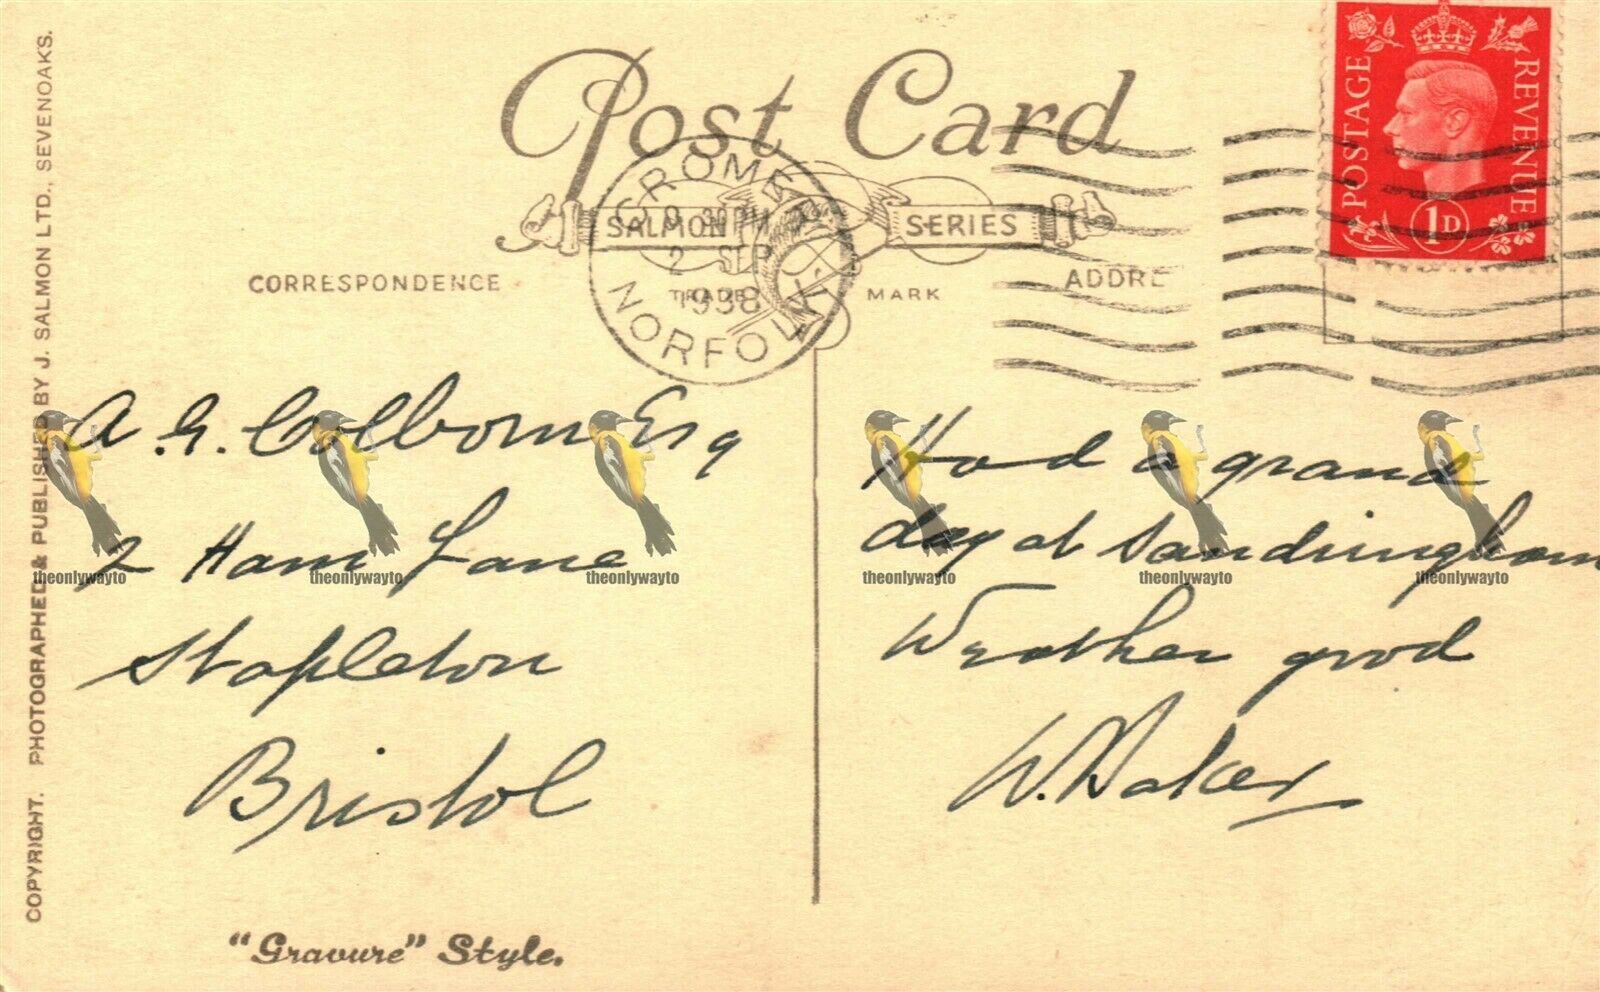 COPYRIGHT. PHOTOGRAPHED & PUBLISHED BY J. SALMON LTD., SEVENOAKS.
Post Card
SALMON SERIES
TRADE MARK
CORRESPONDENCE
ADDRE
CROMER
30 PM
2 SEP
1938
NORFOLK
POSTAGE
REVENUE
1D
A. G. Colborn Esq
2 Ham Lane
Stapleton
Bristol
Had a grand
day at Sandringham
Weather good
W. Baker
"Gravure" Style.
theonlywayto theonlywayto theonlywayto theonlywayto theonlywayto theonlywayto